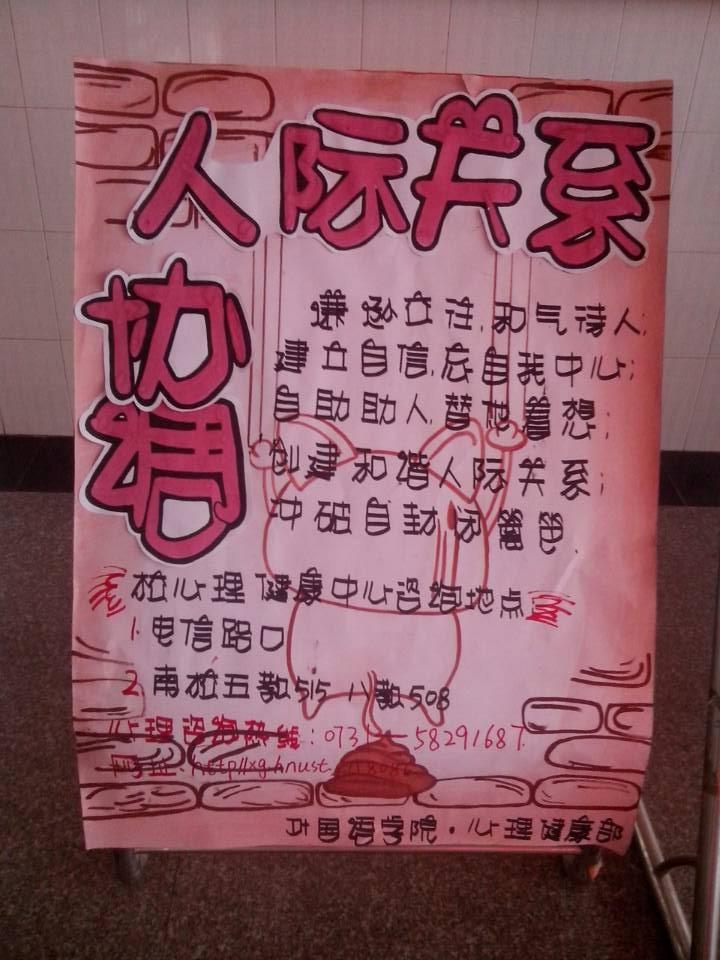 人际关系
协调
谦逊在往,和气待人;
建立自信,忘自我中心;
自助助人,替他着想;
创建和谐人际关系;
冲破自封闭
校心理健康中心咨询地点
1.电信路口
2.南校五教515 八教508
心理咨询热线:0731-58291687
网址:http//xg.hnust.
外国语学院·心理健康部